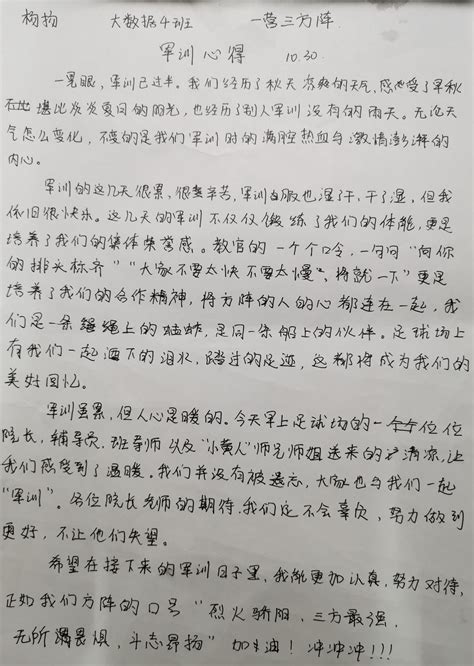 杨扬 大数据4班 一营三方阵
军训心得 10.30
一晃眼,军训已过半。我们经历了秋天凉爽的天气,感受了早秋
堪比炎炎夏日的阳光,也经历了别人军训没有的雨天。无论天
气怎么变化,不变的是我们军训时的满腔热血与激情澎湃的
内心。
军训的这几天很累,很辛苦,军训服也湿了干,干了湿,但我
依旧很快乐。这几天的军训不仅仅锻炼了我们的体能,更是
培养了我们的集体荣誉感。教官的一个个口令,一句句"向你
的排头标齐""大家不要太快不要太慢,将就一下"更是
培养了我们的合作精神,将方阵的人的心都连在一起,我
们是一条绳上的蚂蚱,是同一条船上的伙伴。足球场上
有我们一起洒下的泪水,踏过的足迹,这都将成为我们的
美好回忆。
军训虽累,但人心是暖的。今天早上足球场的一个个位位
院长,辅导员,班导师以及"小黄人"师兄师姐送来的清凉,让
我们感受到了温暖。我们并没有被遗忘,大家也与我们一起
"军训"。各位院长老师的期待,我们定不会辜负,努力做到
更好,不让他们失望。
希望在接下来的军训日子里,我能更加认真,努力对待,
正如我们方阵的口号"烈火骄阳,三方最强,
无所畏惧,斗志昂扬"加油!冲冲冲!!!